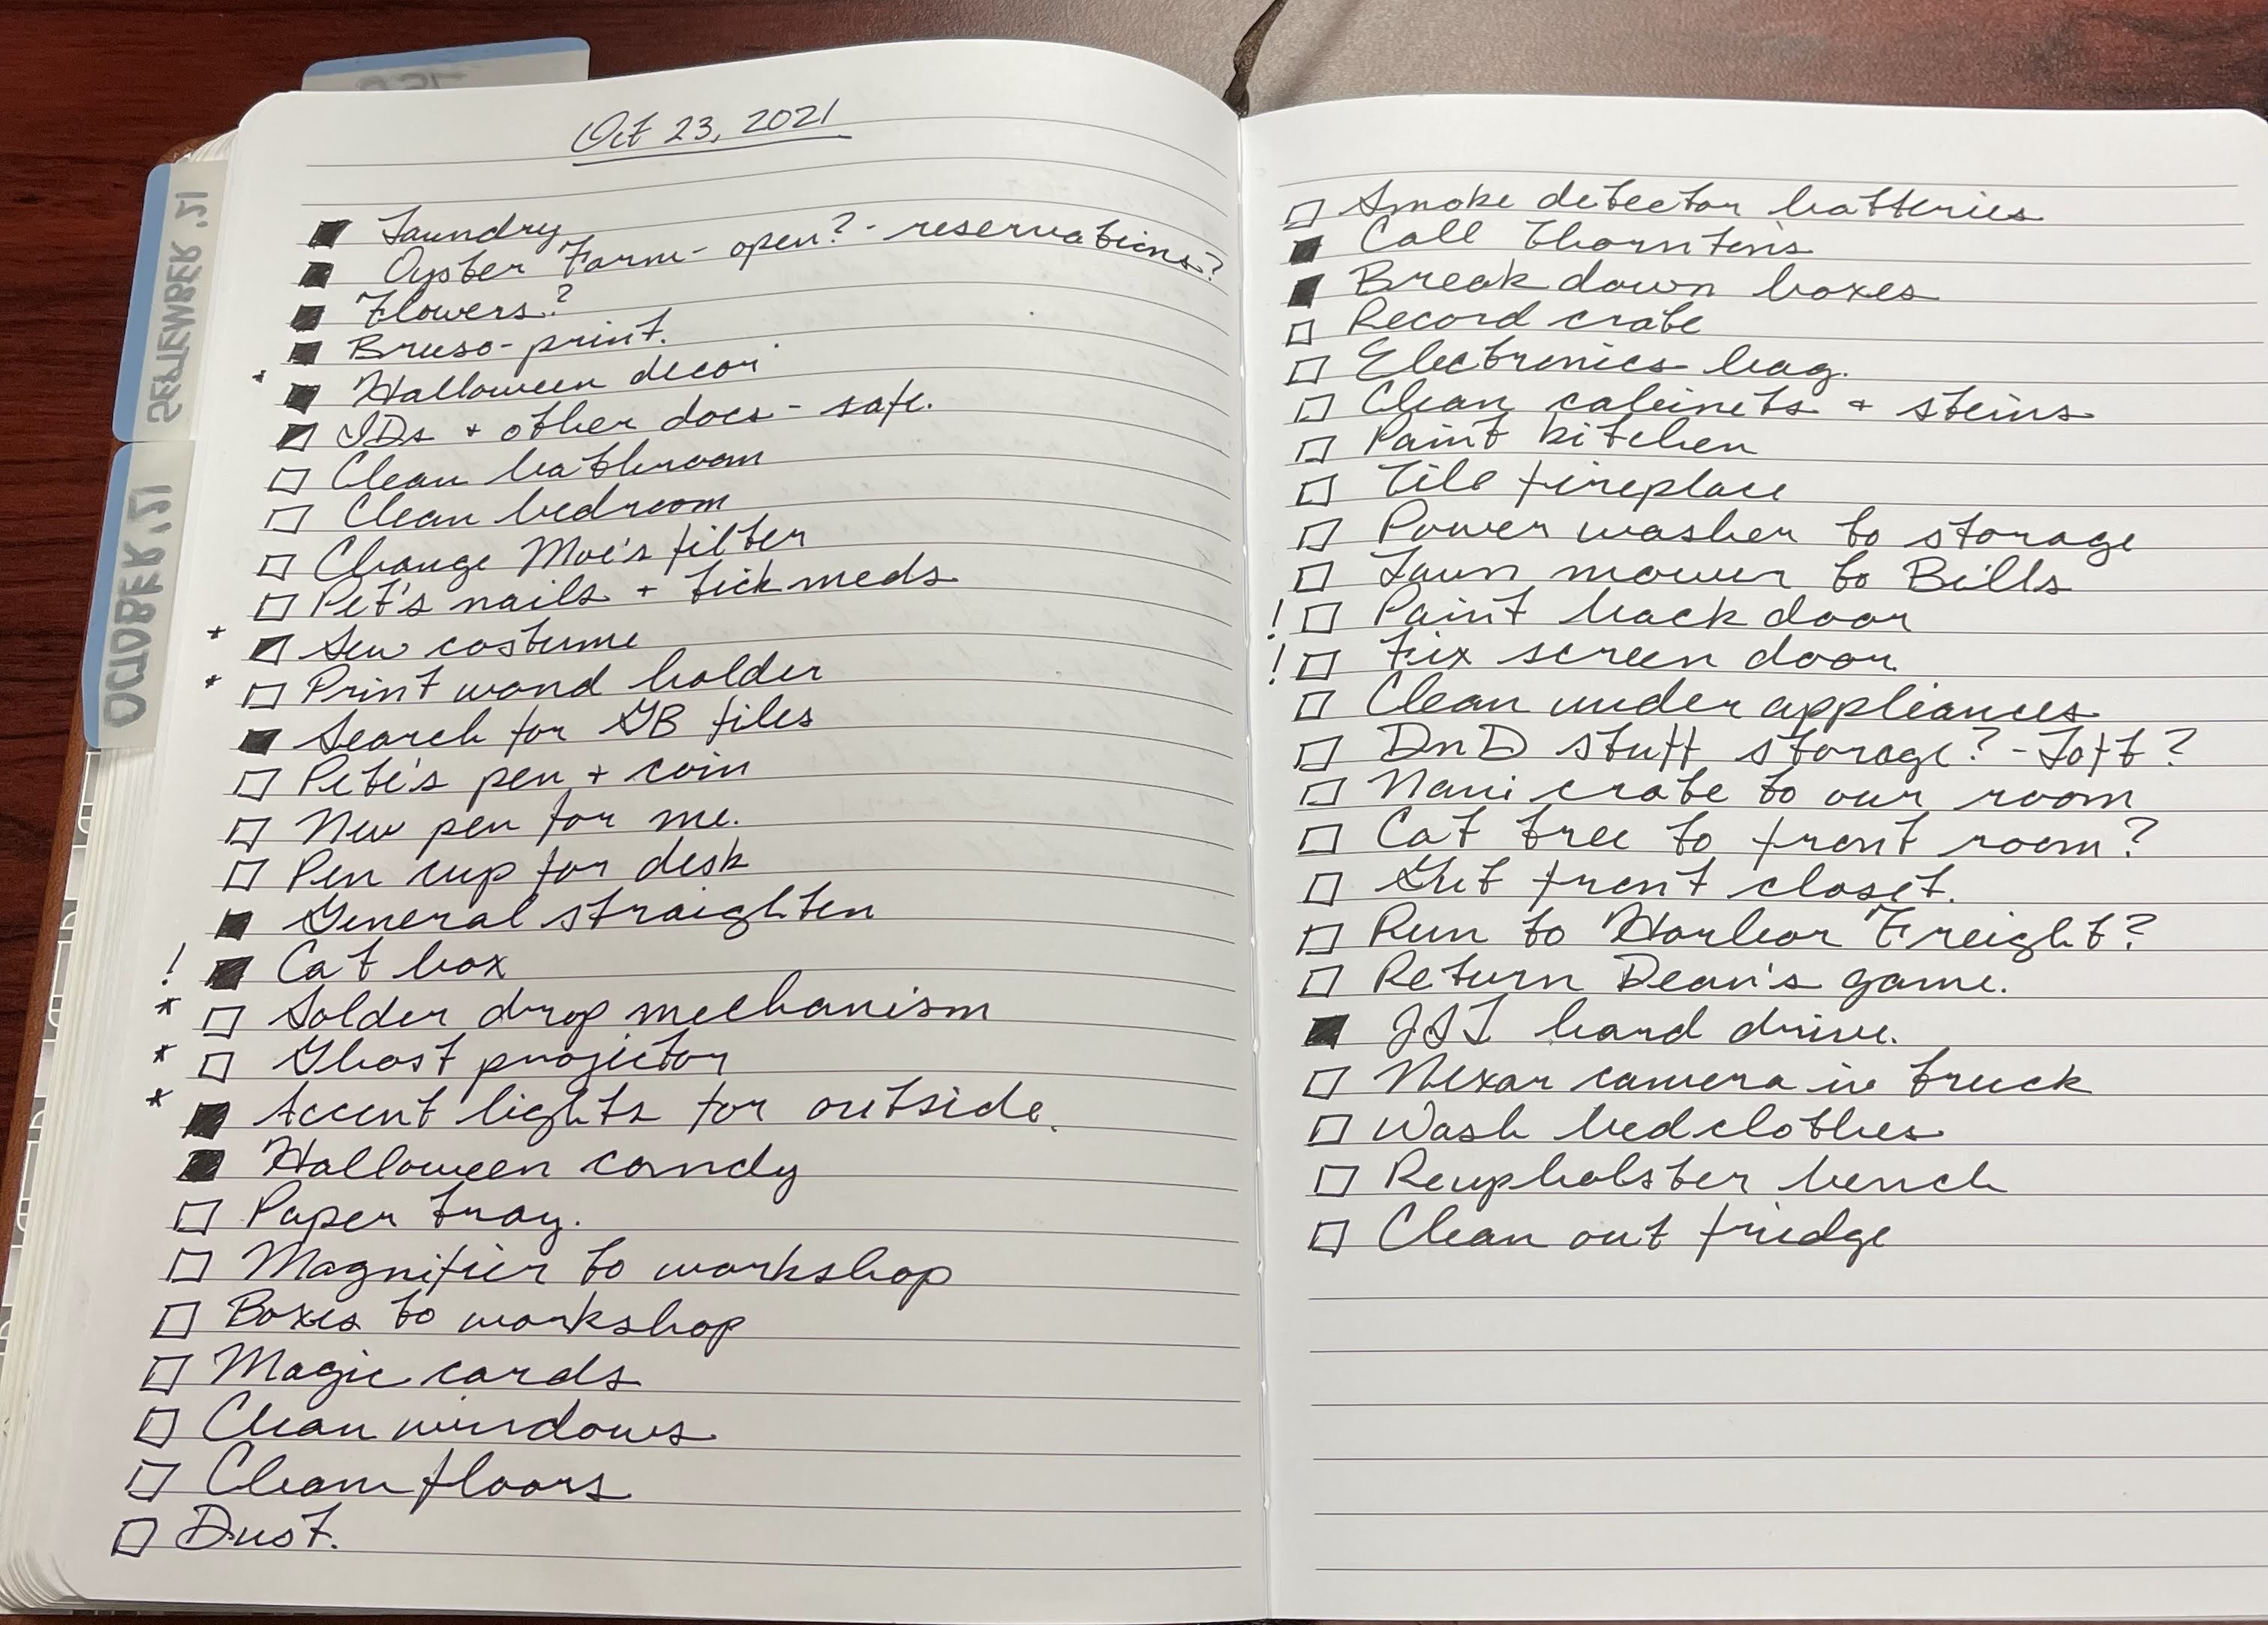 Oct 23, 2021
Laundry
Oyster Farm - open? - reservations?
Flowers?
Bruso - print.
* Halloween decor
IDs + other docs - safe.
Clean bathroom
Clean bedroom
Change Moe's filter
Pet's nails + tick meds
* Sew costume
* Print wand holder
Search for GB files
Pete's pen + coin
New pen for me.
Pen cup for desk
General straighten
! Cat box
* Solder drop mechanism
* Ghost projector
* Accent lights for outside.
Halloween candy
Paper tray.
Magnifier to workshop
Boxes to workshop
Magic cards
Clean windows
Clean floors
Dust.
Smoke detector batteries
Call Thornton's
Break down boxes
Record crate
Electronics bag.
Clean cabinets + steins
Paint kitchen
Tile fireplace
Power washer to storage
Lawn mower to Bills
! Paint back door
! Fix screen door
Clean under appliances
DnD stuff storage? - Loft?
Nani crate to our room
Cat tree to front room?
Gut front closet.
Run to Harbor Freight?
Return Dean's game.
hard drive.
Nexar camera in truck
Wash bedclothes
Reupholster bench
Clean out fridge
SEPTEMBER '21
OCTOBER '21